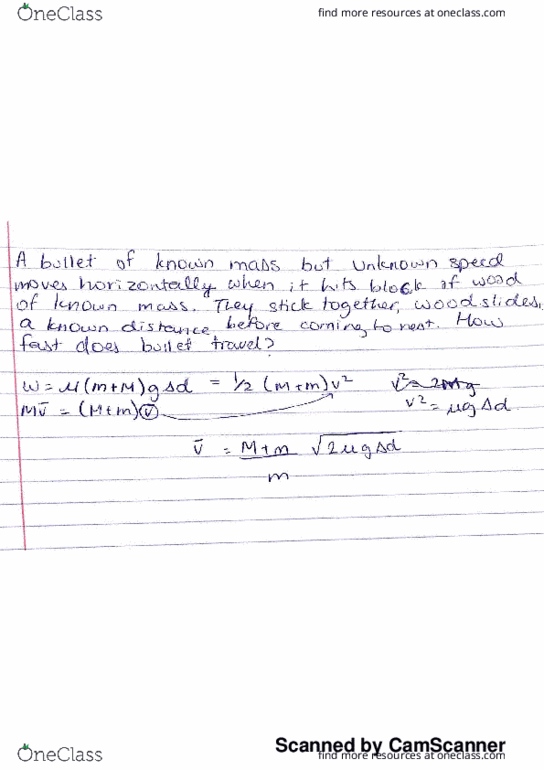 OneClass
find more resources at oneclass.com
A bullet of known mass but unknown speed
moves horizontally when it hits block of wood
of known mass. They stick together, wood slides,
a known distance before coming to rest. How
fast does bullet travel?
W = μ(m+M)gΔd = 1/2 (M+m)v² v² = 2Mg
Mv̄ = (M+m)v̄ v² = μgΔd
v̄ = M+m √2μgΔd
m
Scanned by CamScanner
OneClass
find more resources at oneclass.com